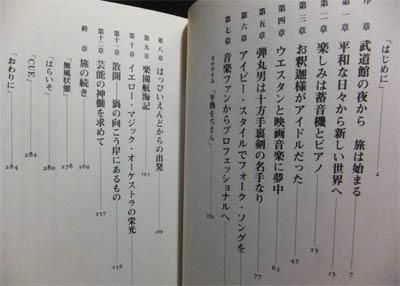 「はじめに」 2
序章 武道館の夜から 旅は始まる 7
第一章 平和な日々から新しい世界へ 15
第二章 楽しみは蓄音機とピアノ 25
第三章 お釈迦様がアイドルだった 45
第四章 ウエスタンと映画音楽に夢中 63
第五章 弾丸男は十方手裏剣の名手なり 77
第六章 アイビー・スタイルでフォーク・ソングを
第七章 音楽ファンからプロフェッショナルへ
161
第八章 はっぴいえんどからの出発 169
第九章 楽園航海記 193
第十章 イエロー・マジック・オーケストラの栄光
第十一章 散開——渦の向こう岸にあるもの 239
第十二章 芸能の神髄を求めて 257
終章 旅の続き 269
「無風状態」 278
「はらいそ」 280
「CUE」 282
「おわりに」 284